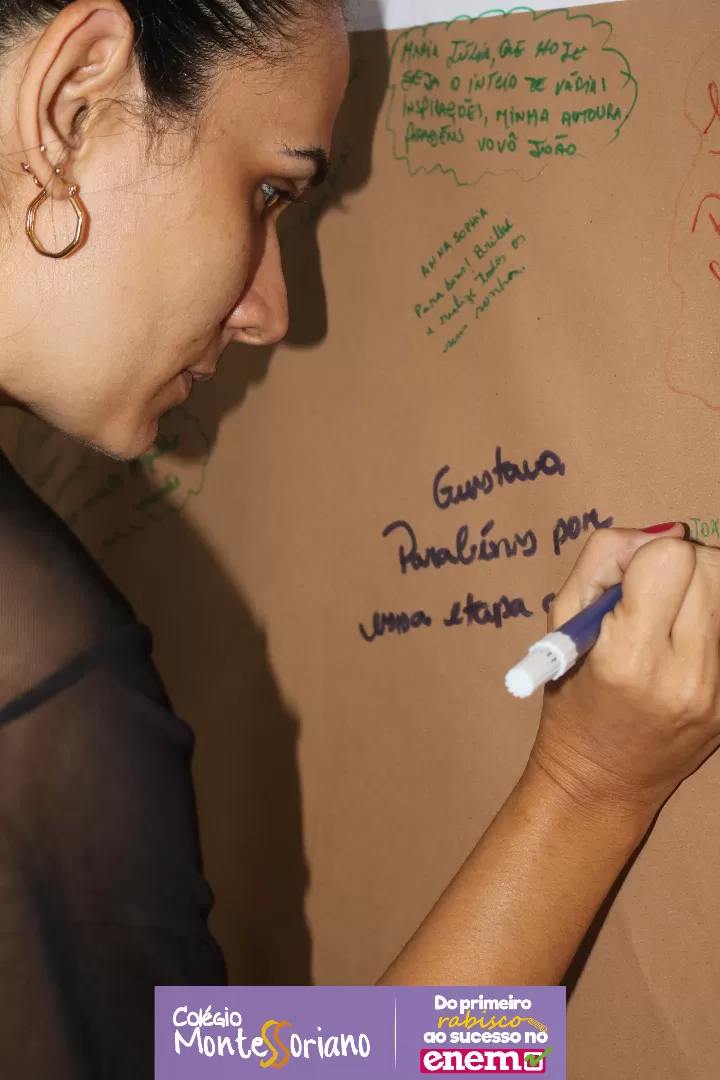 MARIA JÚLIA, QUE HOJE
SEJA O INÍCIO DE VÁRIAS
INSPIRAÇÕES, MINHA AUTOURA
PARABÉNS VOVÔ JOÃO
ANNA SOPHIA
Parabéns! Brilhe
e realize todos os
seus sonhos.
Gustavo,
Parabéns por
essa etapa
Colégio
Montessoriano
Do primeiro
rabisco
ao sucesso no
enem